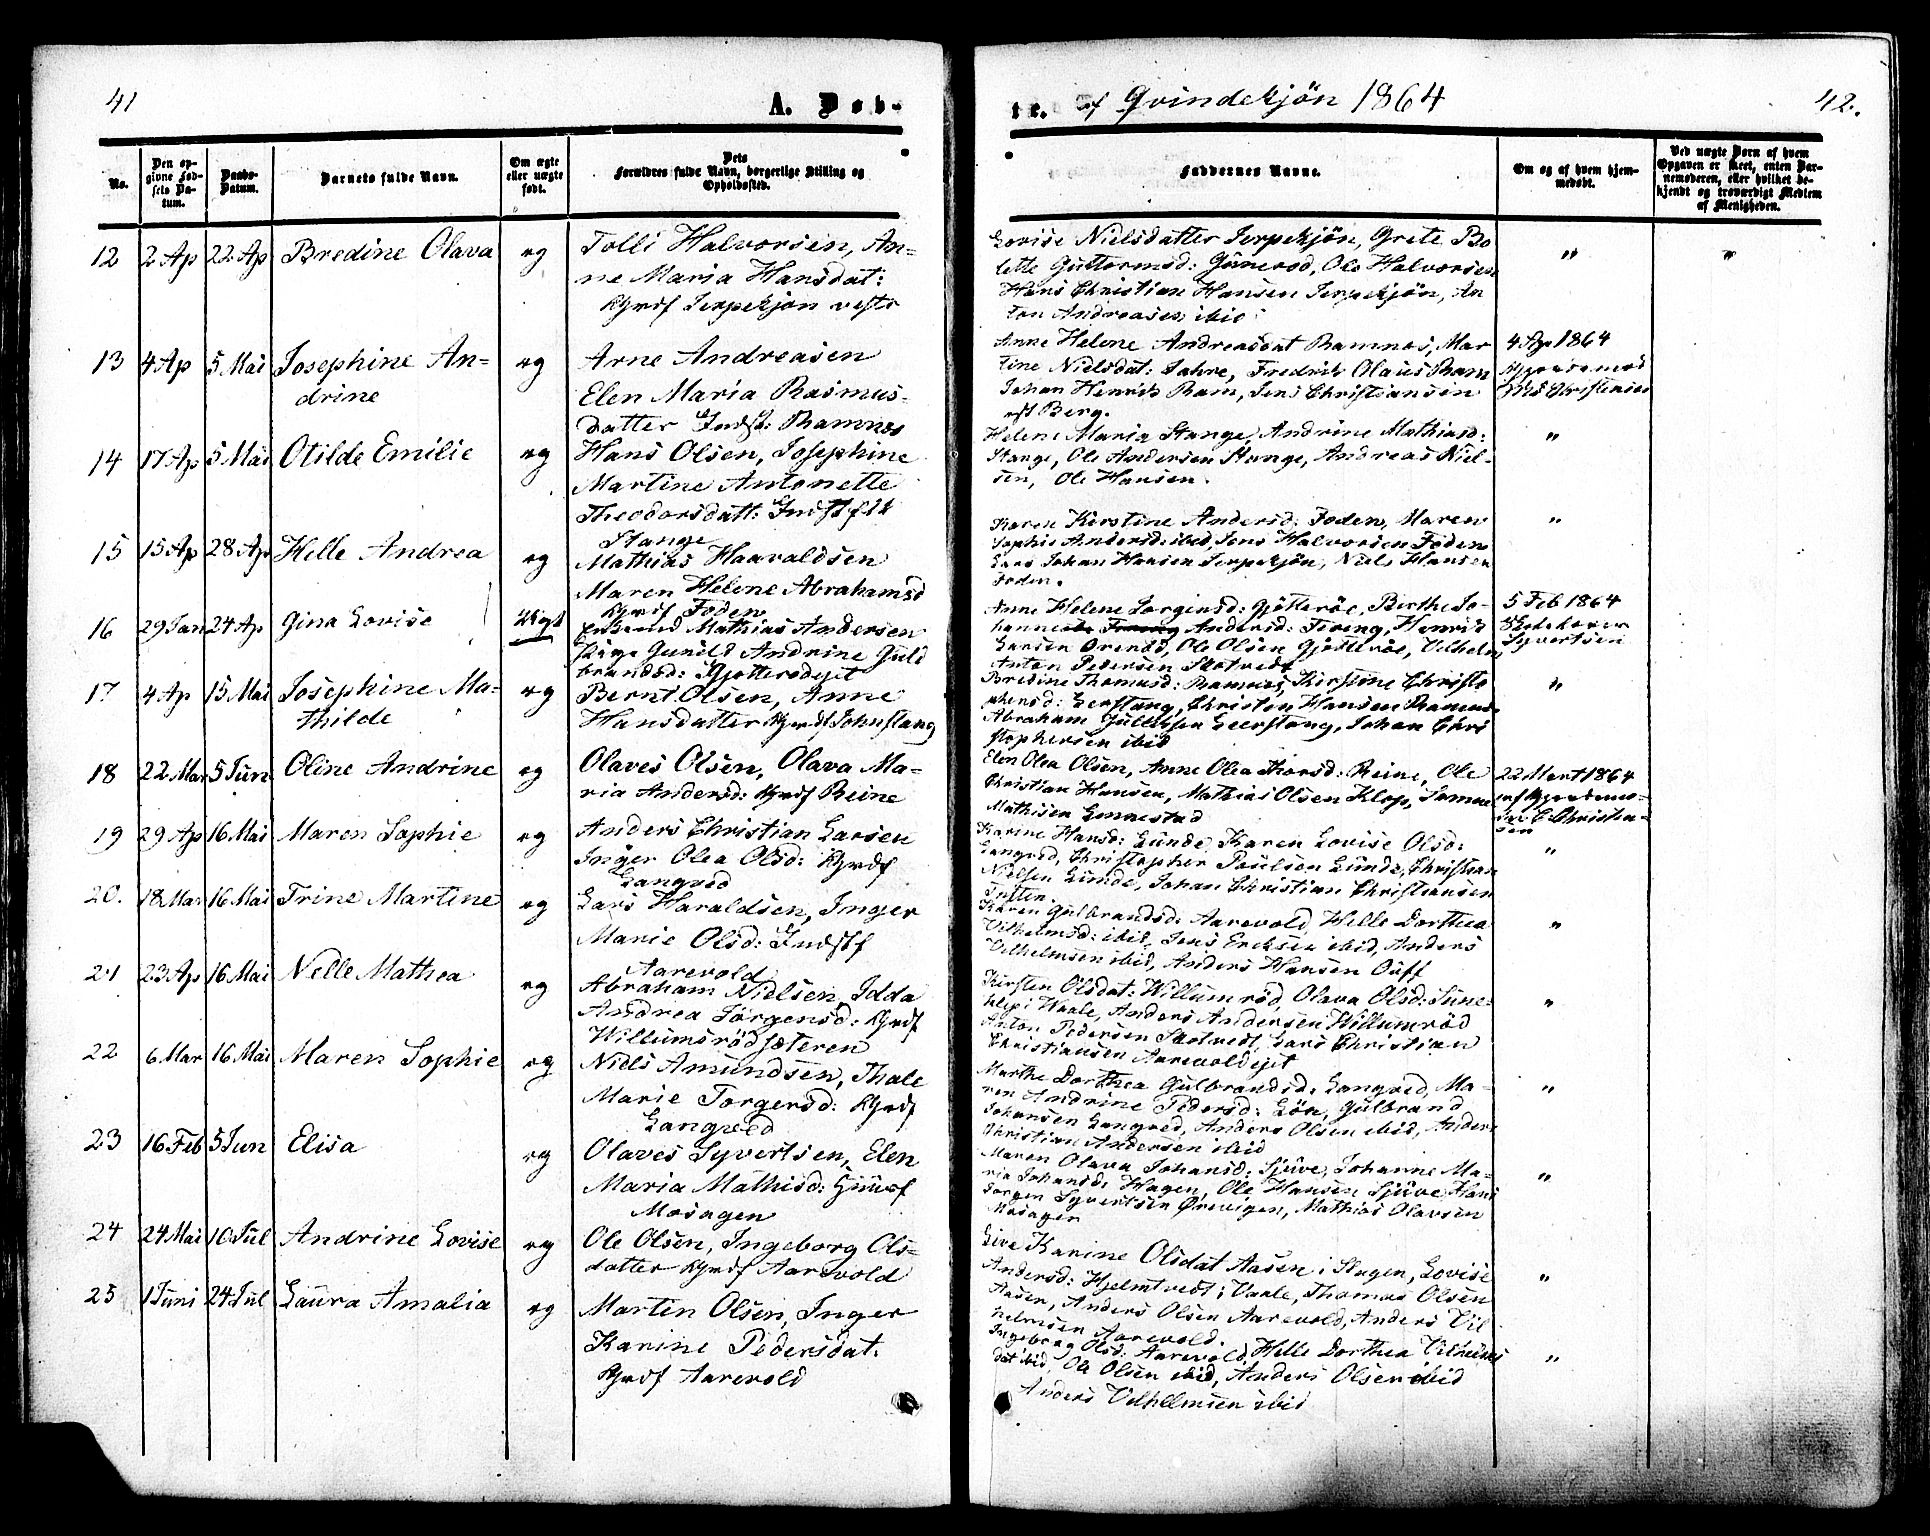 41
A. Døb-
No.
Den op-
givne Fød-
sels Da-
tum.
Daabs-
Datum.
Barnets fulde Navn.
Om ægte
eller uægte
født.
Dets
Forældres fulde Navn, borgerlige Stilling og
Opholdssted.
12 2 Ap 22 Ap Bredine Olava æg Tolli Halvorsen, An-
ne Maria Hansdat:
Jerpekjøn vestr
13 4 Ap 5 Mai Josephine An- æg Arne Andreasen
drine Elen Maria Rasmus-
datter Indst: Ramnes
14 17 Ap 5 Mai Otilde Emilie æg Hans Olsen, Josephine
Martine Antonette
Theodorsdatt: Indst
Stange
15 15 Ap 28 Ap Helle Andrea æg Mathias Haavaldsen
Maren Helene Abrahamsd
Gjmdf Foden
16 29 Jan 24 Ap Gina Lovise Uægt Enkemd Mathias Andersen
Pige Gunild Andrine Guld
brandsd:
17 4 Ap 15 Mai Josephine Ma- æg Bernt Olsen, Anne
thilde Hansdatter Johnstang
18 22 Mar 5 Jun Oline Andrine æg Olaves Olsen, Olava Ma-
ria Andersd: Reine
19 29 Ap 16 Mai Maren Sophie æg Anders Christian Larsen
Inger Olea Olsd:
Langved
20. 18 Mar 16 Mai Trine Martine æg Lars Haraldsen, Inger
Marie Olsd: Indstf
Aarevold
21 23 Ap 16 Mai Nelle Mathea æg Abraham Nielsen, Idda
Andrea Jørgensd:
Willumsrødsæteren
22 6 Mar 16 Mai Maren Sophie æg Niels Amundsen, Thale
Marie Torgersd:
Langved
23 16 Feb 5 Jun Elisa æg Olaves Syvertsen, Elen
Maria Mathisd:
Mosagen
24 24 Mai 10 Jul Andrine Lovise æg Ole Olsen, Ingeborg Ols-
datter Aarevold
25 1 Juni 24 Jul Laura Amalia æg Martin Olsen, Inger
Karine Pedersdat:
Aarevold
te. af Qvindekjön 1864
42.
Faddernes Navne.
Om og af hvem hjem-
medøbt.
Ved uægte Børn af hvem
Opgaven er skeet, enten Bar-
nemoderen, eller hvilket be-
kjendt og troværdigt Medlem
af Menigheden.
Lovise Nielsdatter Jerpekjön, Grete Bo- " "
lette Guttormsd: Gunerød, Ole Halvorsen
Hans Christian Hansen Jerpekjön, An
ton Andreasen ibid:
Anne Helene Andreasdat Ramnes, Mar 4 Ap 1864
tine Nielsdat: Sahre, Fredrik Olaus Ram
Johan Henrik Ram, Jens Christiansen Christensen
Berg.
Helene Maria Stange, Andrine Mathiasd: "
Stange, Ole Andersen Stange, Andreas Niel-
sen, Ole Hansen.
Karen Kirstine Andersd: Foden, Maren "
Sophie Andersd ibid, Jens Halvorsen Foden
Lars Johan Hansen Jerpekjön, Niels Hansen
Foden.
Anne Helene Jørgensd: Gjötteröe, Berthe Jo- 5 Feb 1864
hanne Andersd: Foreng, Henrik
Larsen Orerød, Ole Olsen Gjötteröe, Vilhelm Syvertsen
Anton Pedersen Skotvedt
Bredine Thomasd: Ramnes, Kirstine Christo "
phersd: Geerstang, Christen Hansen Ramnes
Abraham Gulliksen Geerstang, Johan Chri
stophersen ibid
Elen Olea Olsen, Anne Olea Thorsd: Reine, Ole 22 Mart 1864
Christian Hansen, Mathias Olsen Klop, Samuel
Mathisen Linnestad Christen-
sen
Karine Hansd: Lunde, Karen Lovise Olsd: "
Langved, Christopher Poulsen Lunde, Christian
Nielsen Lunde, Johan Christian Christiansen
Tuften.
Karen Gulbrandsd: Aarevold, Helle Dorthea "
Vilhelmsd: ibid, Jens Ericksen ibid, Anders
Vilhelmsen ibid, Anders Hansen Ouff
Kirsten Olsdat: Willumrød, Olava Olsd:
i Waale, Anders Andersen Willumrød "
Anton Pedersen Skotvedt, Lars Christian
Christiansen Aarevoldejet
Marthe Dorthea Gulbrandsd: Langved, Ma- "
ren Andrine Pedersd: Løn, Gulbrand
Johansen Langved, Anders Olsen ibid, Anders
Christian Andersen ibid
Maren Olava Johansd: Sjuve, Johanne Ma- "
ria Johansd: Hagen, Ole Hansen Sjuve, Hans
Jørgen Syvertsen Orevigen, Mathias Olavsen
Mosagen
Live Karine Olsdat Aasen i Skogen, Lovise "
Andersd: Hjelmtvedt i Vaale, Thomas Olsen
Aasen, Anders Olsen Aarevold, Anders Vil
helmsen Aarevold.
Ingeborg Olsd: Aarevold, Helle Dorthea Vilhelms "
dat ibid, Ole Olsen ibid, Anders Olsen ibid
Anders Vilhelmsen ibid